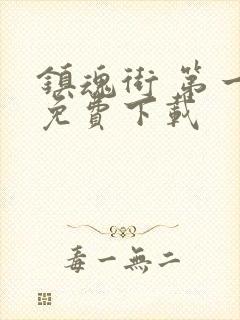 鎮魂街 第一
免費下載
毒一無二